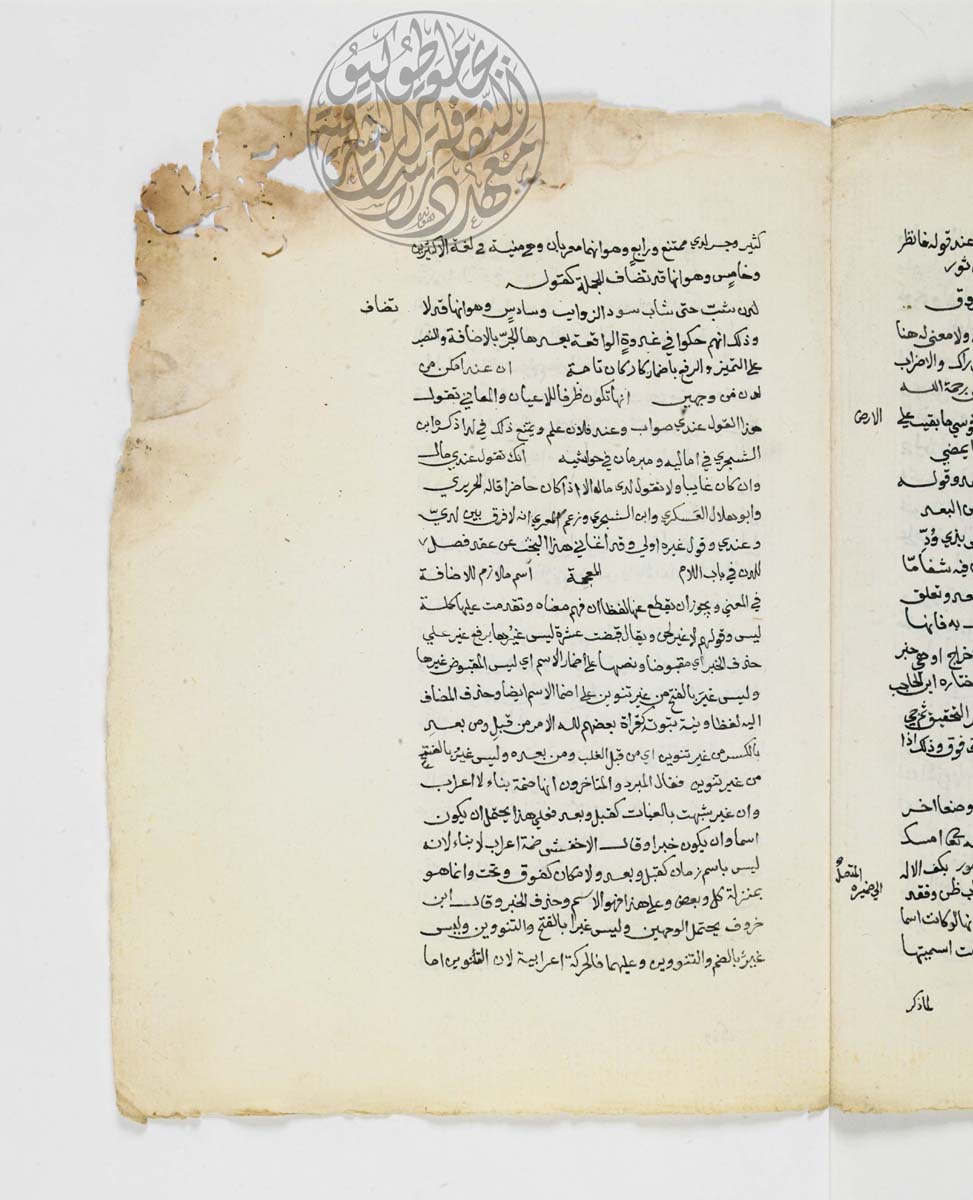 كثير وجر لدى ممتنع ورابع وهو انهما معربان وهي مبنية في لغة الاكثرين
وخامس وهو انها قد تضاف للجملة كقوله
لدن شبّ حتى شاب سود الذوايب وسادس وهو انها قد لا تضاف
وذلك انهم حكوا في غدوة الواقعة بعدها الجرّ بالاضافة والنصب
على التمييز والرفع باضمار كان تامة ان عند امكن من
لدى من وجهين انها تكون ظرفا للاعيان والمعاني تقول
هذا القول عندي صواب وعند فلان علم ويمتنع ذلك في لدا ذكره ابن
الشجري في اماليه ومبرمان في حواشيه انك تقول عندي مال
وان كان غايبا ولا تقول لدي مال الا اذا كان حاضرا قاله الحريري
وابو هلال العسكري وابن الشجري وزعم المعري انه لا فرق بين لديّ
وعندي وقول غيره اولى وقد اغناني هذا البحث عن عقد فصل
للدن في باب اللام المعجمة اسم ملازم للاضافة
في المعنى ويجوز ان يقطع عنها لفظا ان فهم معناه وتقدمت عليها كلمة
ليس وقولهم لا غير لحن ويقال قبضت عشرة ليس غيرها برفع غير على
حذف الخبر أي مقبوضا ونصبها على اضمار الاسم اي ليس المقبوض غيرها
وليس غير بالفتح من غير تنوين على اضما الاسم ايضا وحذف المضاف
اليه لفظا ونية ثبوته كقراة بعضهم لله الامر من قبل ومن بعد
بالكسر من غير تنوين اي من قبل الغلب ومن بعده وليس غير
من غير تنوين فقال المبرد والمتاخرون انها ضمة بناء لا اعراب
وان غير شبهت بالغايات كقبل وبعد فعلى هذا يحتمل ان يكون
اسما وان يكون خبرا وقال الاخفش ضمة اعراب لا بناء لانه
ليس باسم زمان كقبل وبعد ولا مكان كفوق وتحت وانما هو
بمنزلة كل وبعض وعلى هذا فهو الاسم وحذف الخبر وقال ابن
خروف يحتمل الوجهين وليس غيرا بالفتح والتنووين وليس
غيرٌ بالضم والتنووين وعليهما فالحركة اعرابية لان التنوين اما
عند قوله فانظر
ولا معنى له هنا
راك والاضراب
رحمة الله
الارض
وقوله
البعد
وتعلق
به فانها
اختاره ابن الحاجب
التحقيق
فوق وذلك اذا
وضعا اخر
المتصل
الى ضميره
لو كانت اسما
اسميتها